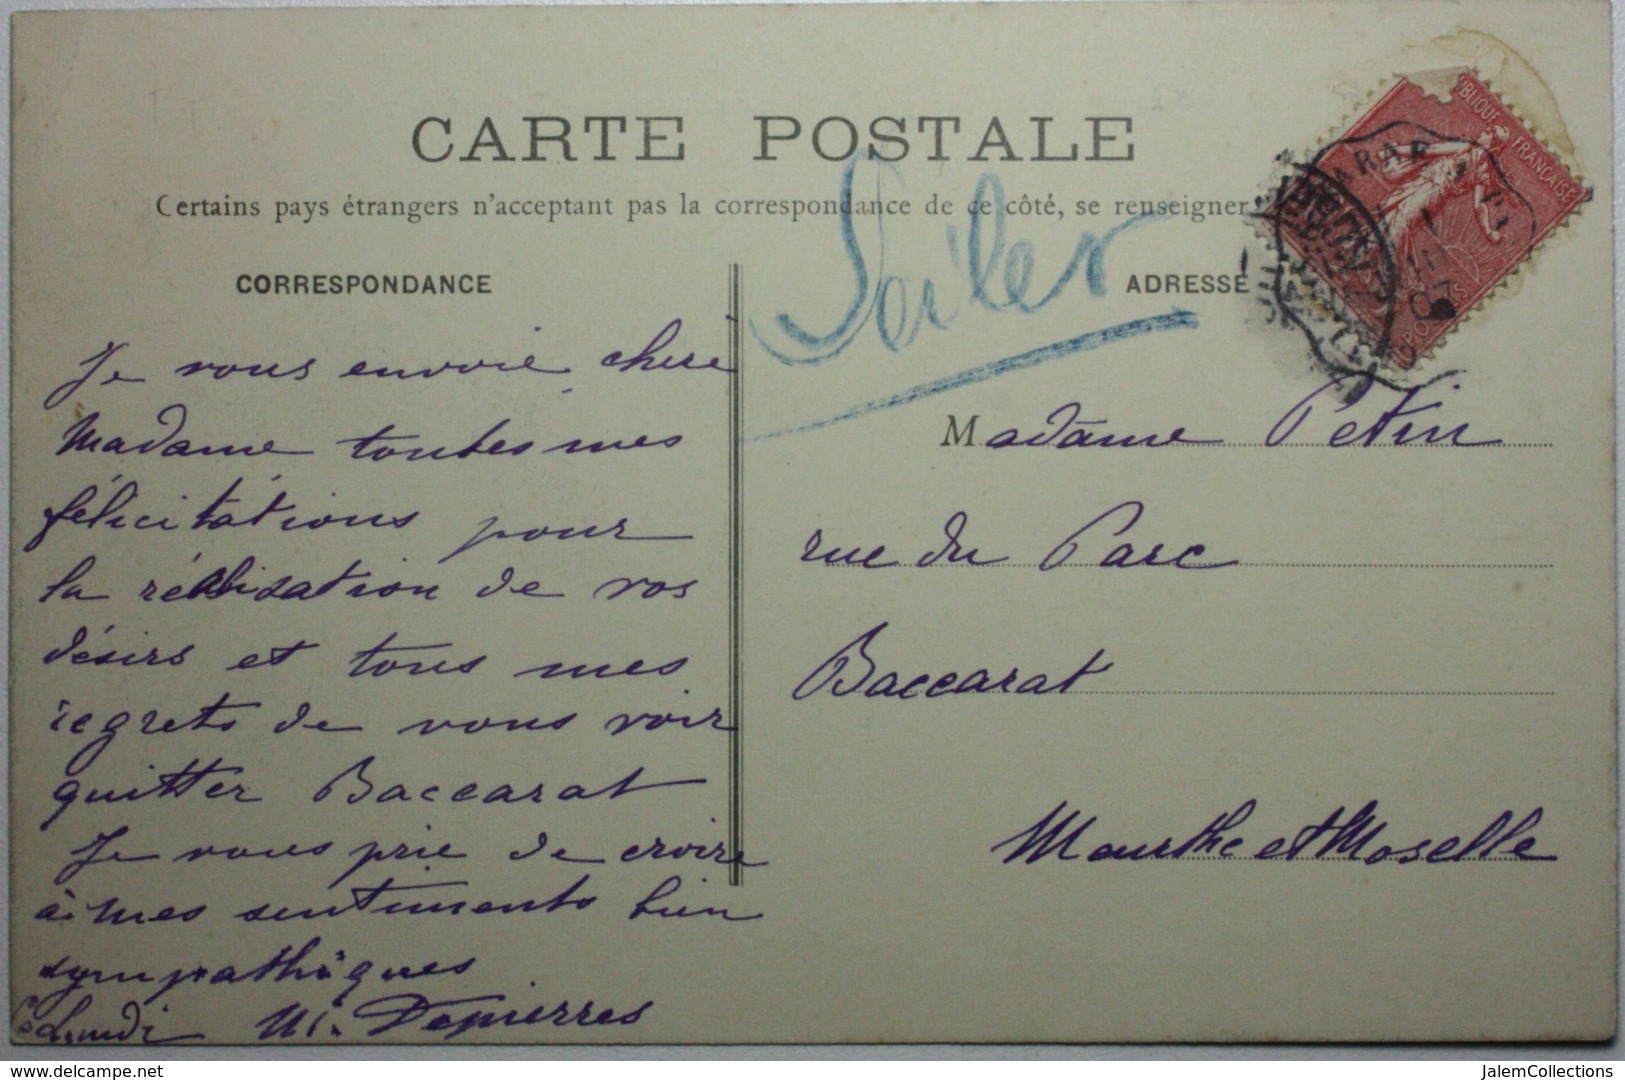 CARTE POSTALE
Certains pays étrangers n'acceptant pas la correspondance de ce côté, se renseigner
CORRESPONDANCE
Je vous envoie chère
Madame toutes mes
félicitations pour
la réalisation de vos
désirs et tous mes
regrets de vous voir
quitter Baccarat
Je vous prie de croire
à mes sentiments bien
sympathiques
Ce Lundi M. Depierres
ADRESSE
Madame Petin
rue du Parc
Baccarat
Meurthe et Moselle
BLIQUE FRANÇAISE
POSTES
delcampe.net
JalemCollections